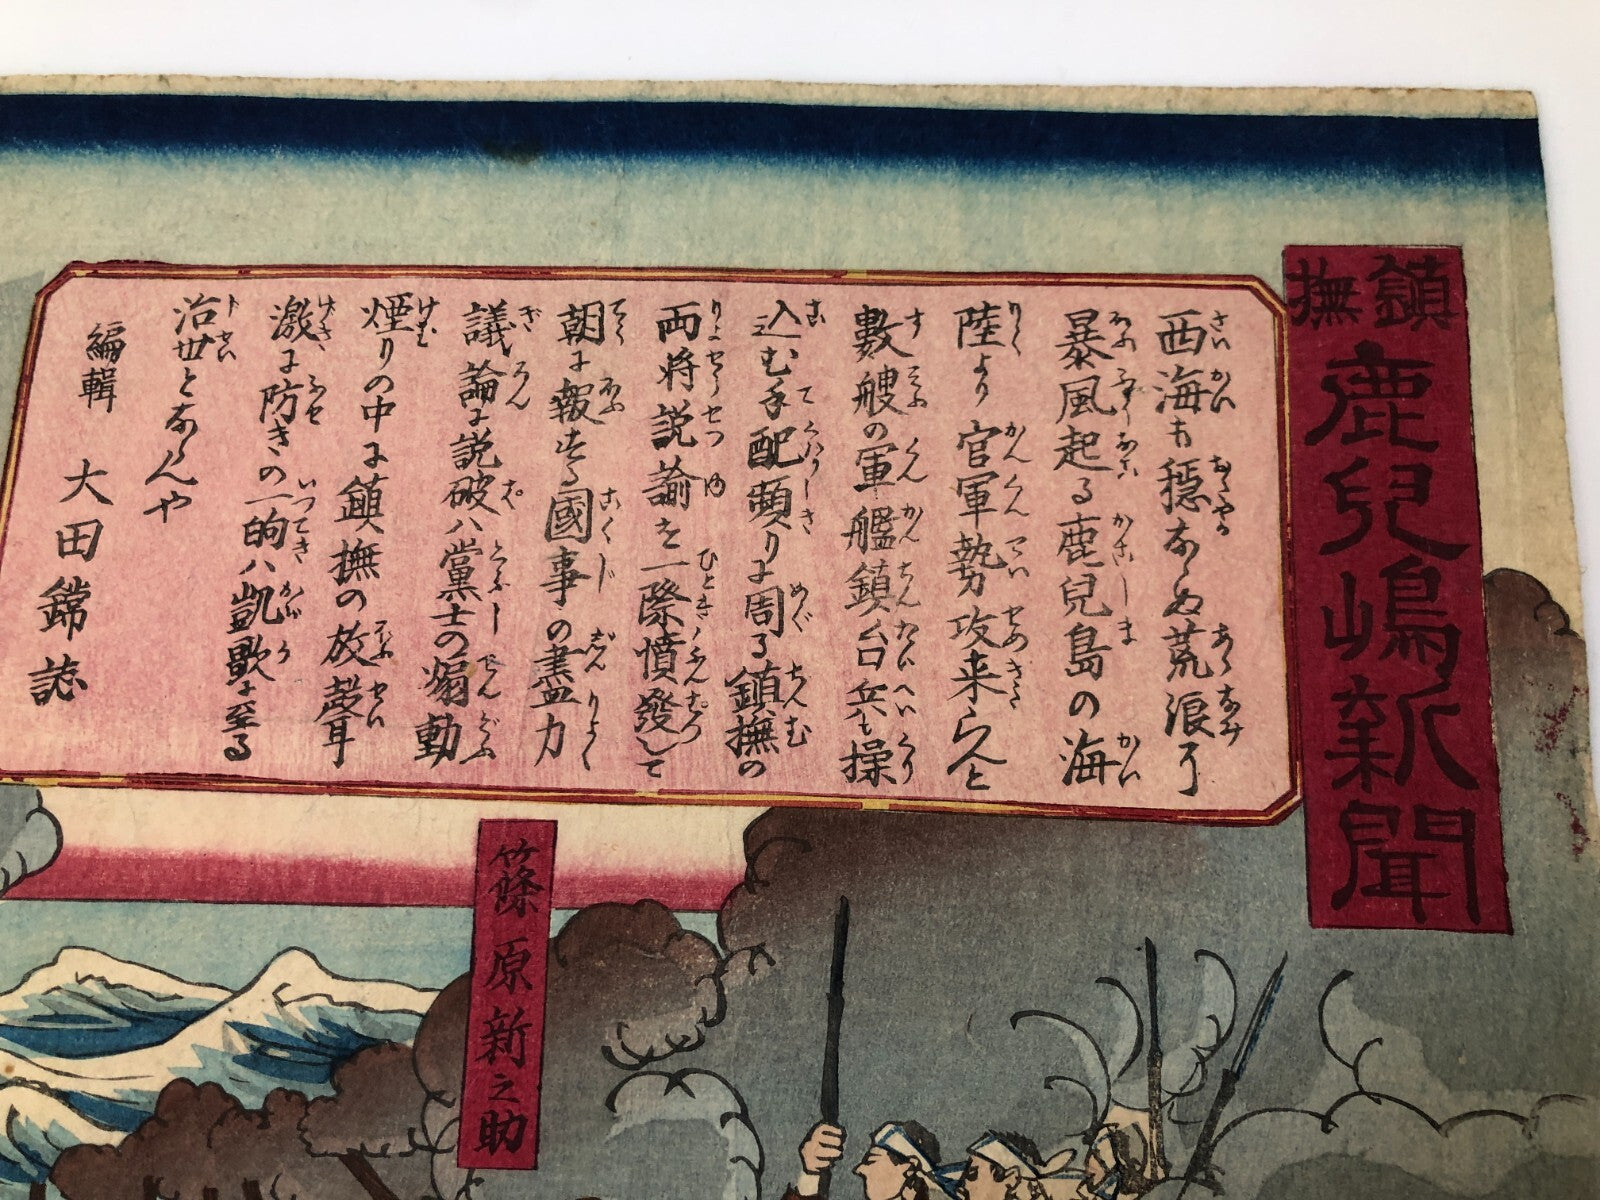 鎮撫
鹿兒嶋新聞
西海も穏ならぬ荒浪に
暴風起る鹿兒島の海
陸より官軍勢攻来らんと
數艘の軍艦鎮台兵も操
込む手配頻りに周る鎮撫の
両将説諭を一際憤發して
朝に報ずる國事の盡力
議論に説破ハ黨士の煽動
煙りの中に鎮撫の放聲
激に防きの一的ハ凱歌に至る
治世とならんや
編輯 大田錦誌
篠原新之助